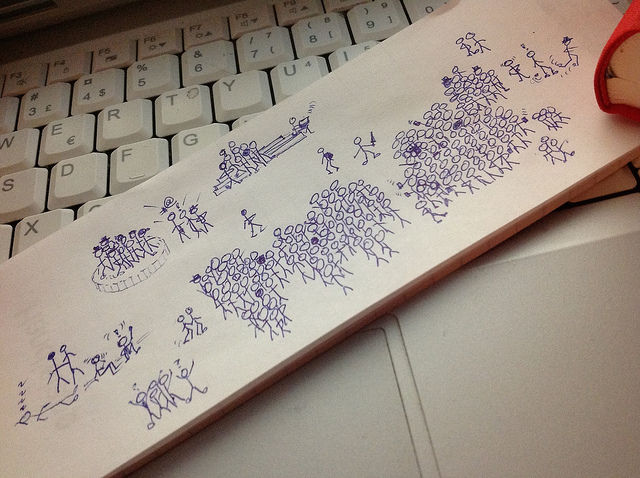 F3 F4 F5 F6 F7 F8 F9
# 3 £ ¤ 4 $ % 5 & 6 / 7 { ( 8 [ ) 9 ]
W E € R T Y U
S D F G
X
z z z z